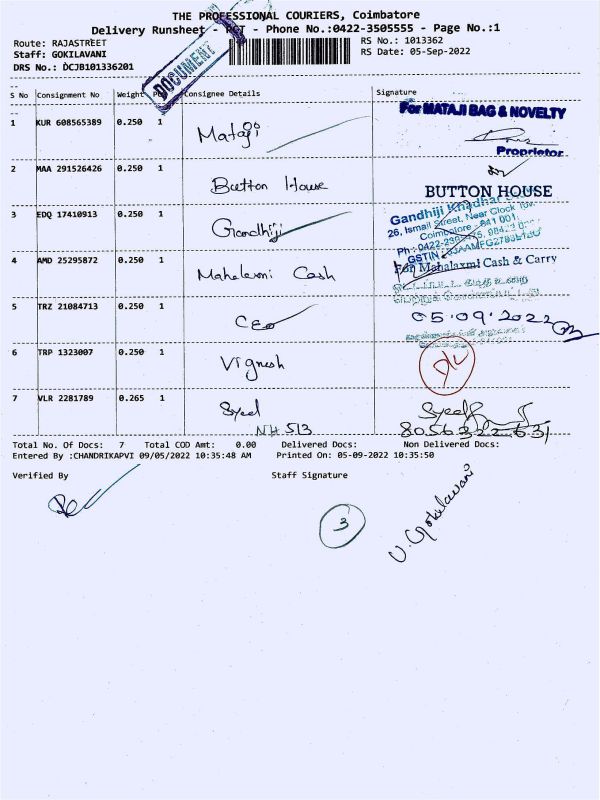 THE PROFESSIONAL COURIERS, Coimbatore
Delivery Runsheet - - Phone No.:0422-3505555 - Page No.:1
Route: RAJASTREET RS No.: 1013362
Staff: GOKILAVANI RS Date: 05-Sep-2022
DRS No.: DCJB101336201
DOCUMENT
S No Consignment No Weight Consignee Details Signature
1 KUR 608565389 0.250 1 Mataji For MATAJI BAG & NOVELTY
Proprietor
2 MAA 291526426 0.250 1 Button House BUTTON HOUSE
3 EDQ 17410913 0.250 1 Gandhiji Gandhiji Khadhar
26, Ismail Street, Near Clock Tow
Coimbatore - 641 001.
4 AMD 25295872 0.250 1 Mahalaxmi Cash For Mahalaxmi Cash & Carry
5 TRZ 21084713 0.250 1 CEO 05.09.2022
6 TRP 1323007 0.250 1 Vignesh D/L
7 VLR 2281789 0.265 1 Syed Syed
NH 513 8056322631
Total No. Of Docs: 7 Total COD Amt: 0.00 Delivered Docs: Non Delivered Docs:
Entered By :CHANDRIKAPVI 09/05/2022 10:35:48 AM Printed On: 05-09-2022 10:35:50
Verified By Staff Signature
3
U. Gokilavani